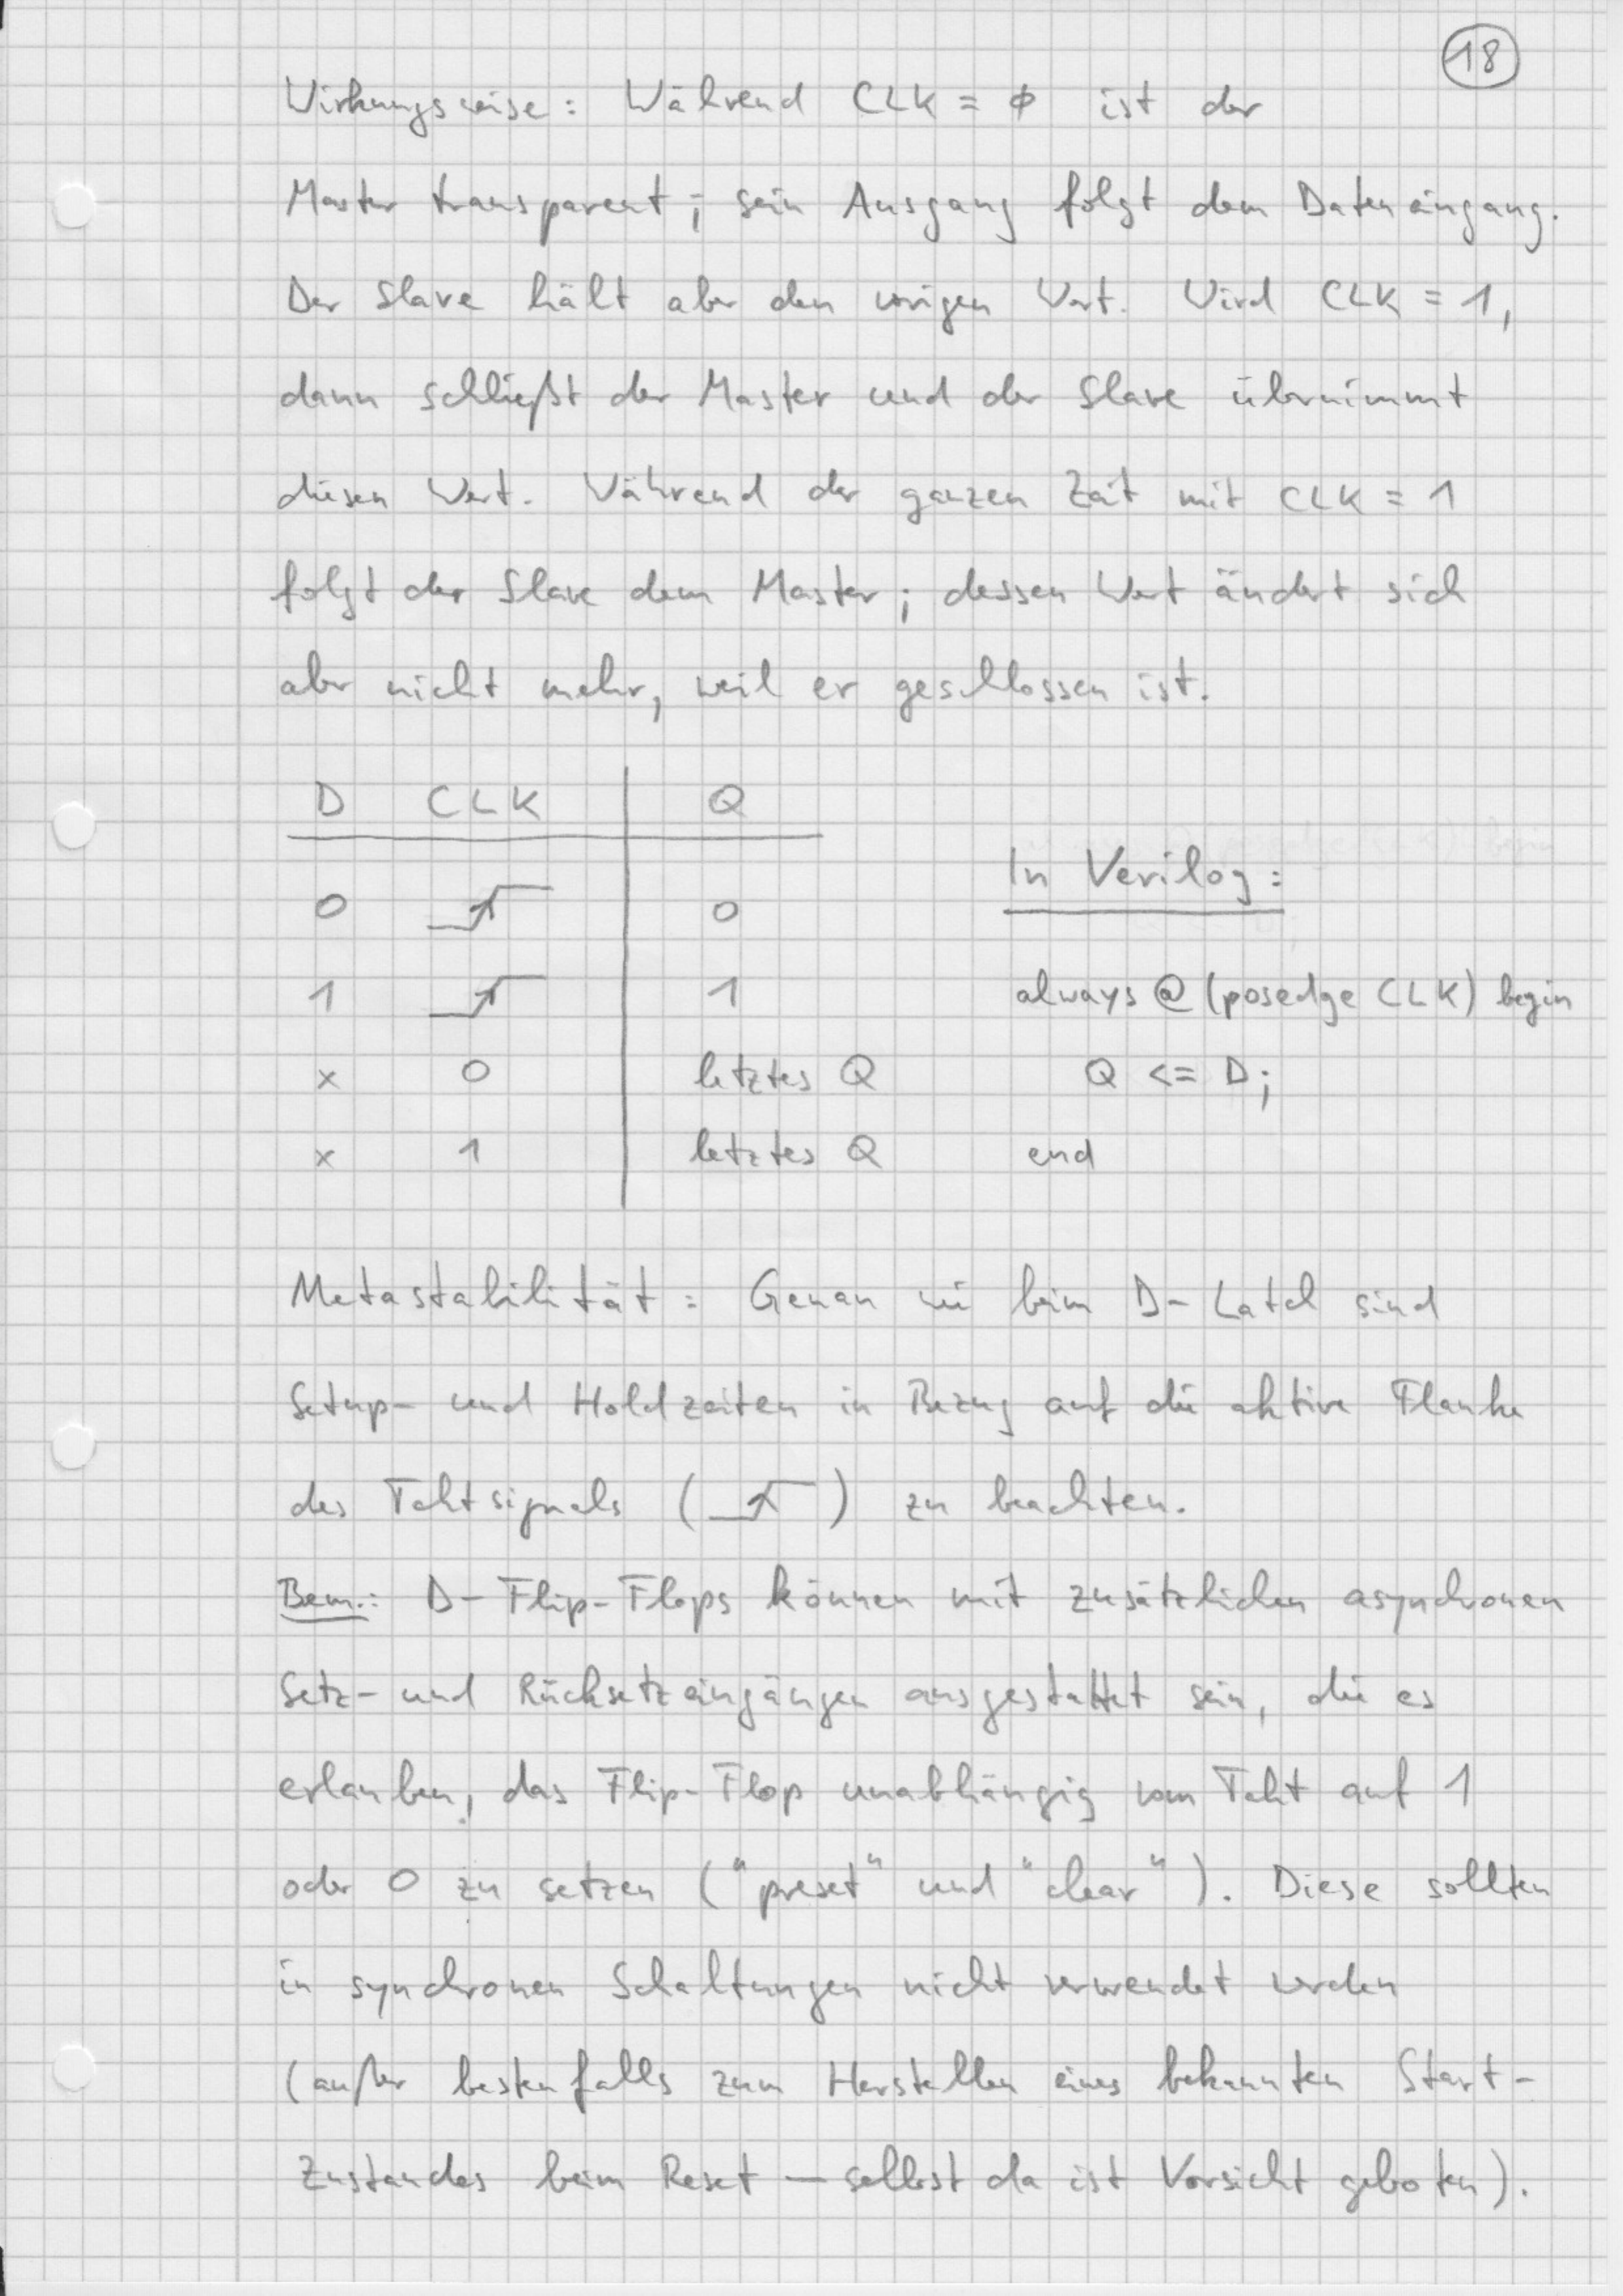 18
Wirkungsweise: Während CLK = ϕ ist der
Master transparent; sein Ausgang folgt dem Dateneingang.
Der Slave hält aber den vorigen Wert. Wird CLK = 1,
dann schließt der Master und der Slave übernimmt
diesen Wert. Während der ganzen Zeit mit CLK = 1
folgt der Slave dem Master; dessen Wert ändert sich
aber nicht mehr, weil er geschlossen ist.
D CLK Q
In Verilog:
0 0
1 1 always @ (posedge CLK) begin
x 0 letztes Q Q <= D;
x 1 letztes Q end
Metastabilität: Genau wie beim D-Latch sind
Setup- und Holdzeiten in Bezug auf die aktive Flanke
des Taktsignals ( ) zu beachten.
Bem.: D-Flip-Flops können mit zusätzlichen asynchronen
Setz- und Rücksetzeingängen ausgestattet sein, die es
erlauben, das Flip-Flop unabhängig vom Takt auf 1
oder 0 zu setzen ("preset" und "clear"). Diese sollten
in synchronen Schaltungen nicht verwendet werden
(außer bestenfalls zum Herstellen eines bekannten Start-
Zustandes beim Reset — selbst da ist Vorsicht geboten).